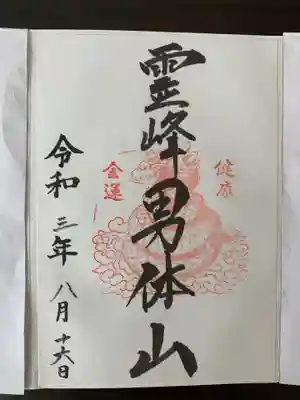 霊峰男体山
健康
金運
令和三年八月十六日